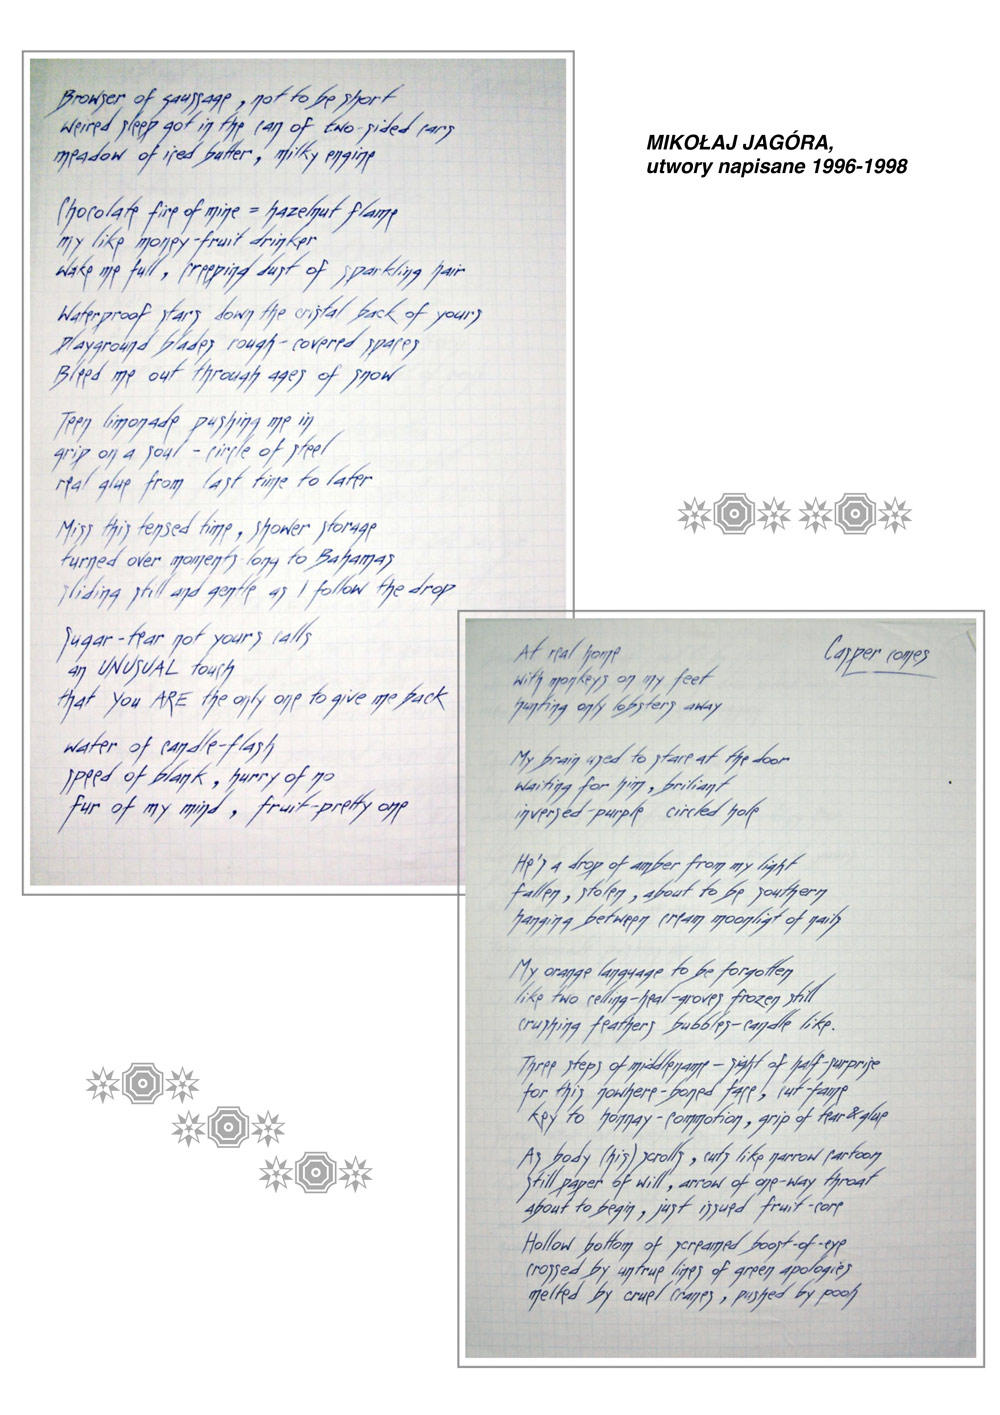 Browser of saussage, not to be short
weired sleep got in the can of two-sided cars
meadow of iced butter, milky engine
Chocolate fire of mine = hazelnut flame
my like money-fruit drinker
wake me full, creeping dust of sparkling hair
Waterproof stars down the cristal back of yours
playground blades rough-covered spaces
Bleed me out through ages of snow
Teen limonade pushing me in
grip on a soul - circle of steel
real glue from last time to later
Miss this tensed time, shower storage
turned over moments long to Bahamas
sliding still and gentle as I follow the drop
Sugar-tear not yours calls
an UNUSUAL touch
that you ARE the only one to give me back
water of candle-flash
speed of blank, hurry of no
fur of my mind, fruit-pretty one
MIKOŁAJ JAGÓRA,
utwory napisane 1996-1998
Casper comes
At real home
with monkeys on my feet
hunting only lobsters away
My brain used to stare at the door
waiting for him, briliant
inversed-purple circled hole
He's a drop of amber from my light
fallen, stolen, about to be southern
hanging between cream moonligt of nails
My orange language to be forgotten
like two celling-heal-groves frozen still
crushing feathers bubbles-candle like.
Three steps of middlename - sight of half-surprise
for this nowhere-boned face, cut-fame
key to hunnay-commotion, grip of tear & glue
As body (his) scrolls, cuts like narrow cartoon
still paper of will, arrow of one-way throat
about to begin, just issued fruit-core
Hollow bottom of screamed boost-of-eye
crossed by untrue lines of green apologies
melted by cruel cranes, pushed by pooh